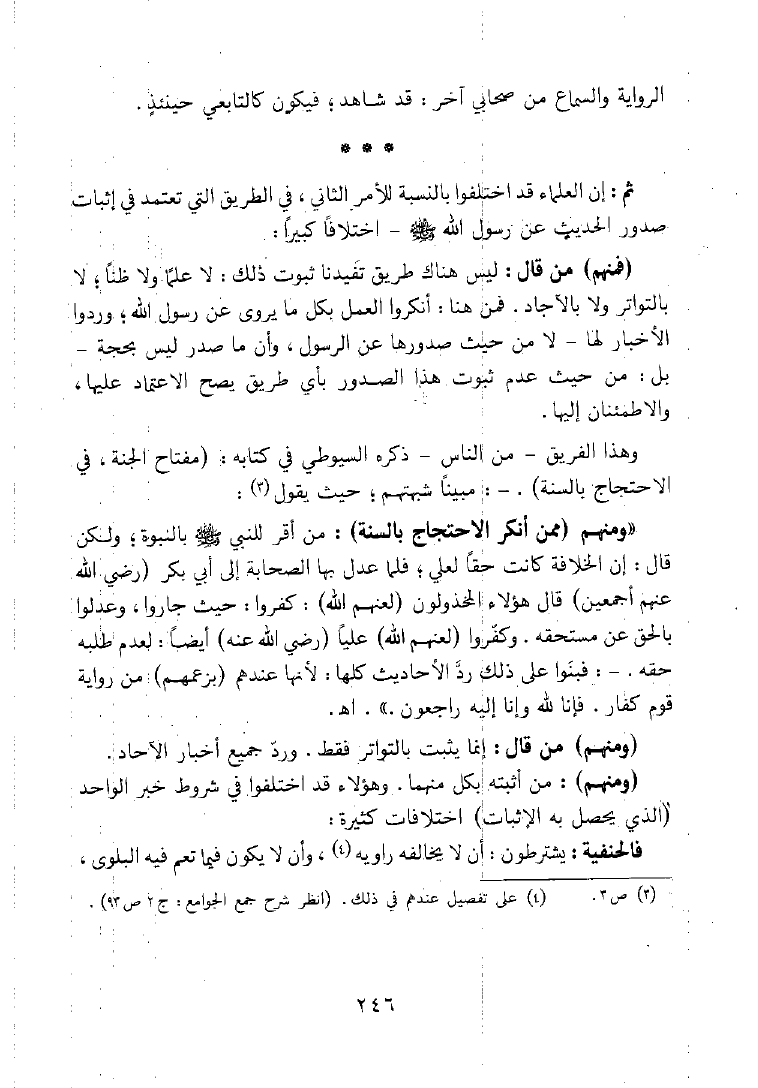 الرواية والسماع من صحابي آخر : قد شاهد ؛ فيكون كالتابعي حينئذٍ .
* * *
ثم : إن العلماء قد اختلفوا بالنسبة للأمر الثاني ، في الطريق التي تعتمد في إثبات
صدور الحديث عن رسول الله ﷺ – اختلافًا كبيراً :
(فمنهم) من قال : ليس هناك طريق تفيدنا ثبوت ذلك : لا علمًا ولا ظنًا ؛ لا
بالتواتر ولا بالآحاد . فمن هنا : أنكروا العمل بكل ما يروى عن رسول الله ؛ وردوا
الأخبار لها – لا من حيث صدورها عن الرسول ، وأن ما صدر ليس بحجة –
بل : من حيث عدم ثبوت هذا الصدور بأي طريق يصح الاعتماد عليها ،
والاطمئنان إليها .
وهذا الفريق – من الناس – ذكره السيوطي في كتابه : (مفتاح الجنة ، في
الاحتجاج بالسنة) . – : مبيناً شبهتهم ؛ حيث يقول (٣) :
«ومنهم (ممن أنكر الاحتجاج بالسنة) : من أقر للنبي ﷺ بالنبوة ؛ ولكن
قال : إن الخلافة كانت حقاً لعلي ؛ فلما عدل بها الصحابة إلى أبي بكر (رضي الله
عنهم أجمعين) قال هؤلاء المخذولون (لعنهم الله) : كفروا : حيث جاروا ، وعدلوا
بالحق عن مستحقه . وكفّروا (لعنهم الله) علياً (رضي الله عنه) أيضاً : لعدم طلبه
حقه . – : فبنَوا على ذلك ردَّ الأحاديث كلها : لأنها عندهم (بزعمهم) : من رواية
قوم كفار . فإنا لله وإنا إليه راجعون .» . اهـ .
(ومنهم) من قال : إنما يثبت بالتواتر فقط . وردّ جميع أخبار الآحاد .
(ومنهم) : من أثبته بكل منهما . وهؤلاء قد اختلفوا في شروط خبر الواحد
(الذي يحصل به الإثبات) اختلافات كثيرة :
فالحنفية : يشترطون : أن لا يخالفه راويه (٤) ، وأن لا يكون فيما تعم فيه البلوى ،
(٣) ص ٣ . (٤) على تفصيل عندهم في ذلك . (انظر شرح جمع الجوامع : ج ٢ ص ٩٣) .
٢٤٦